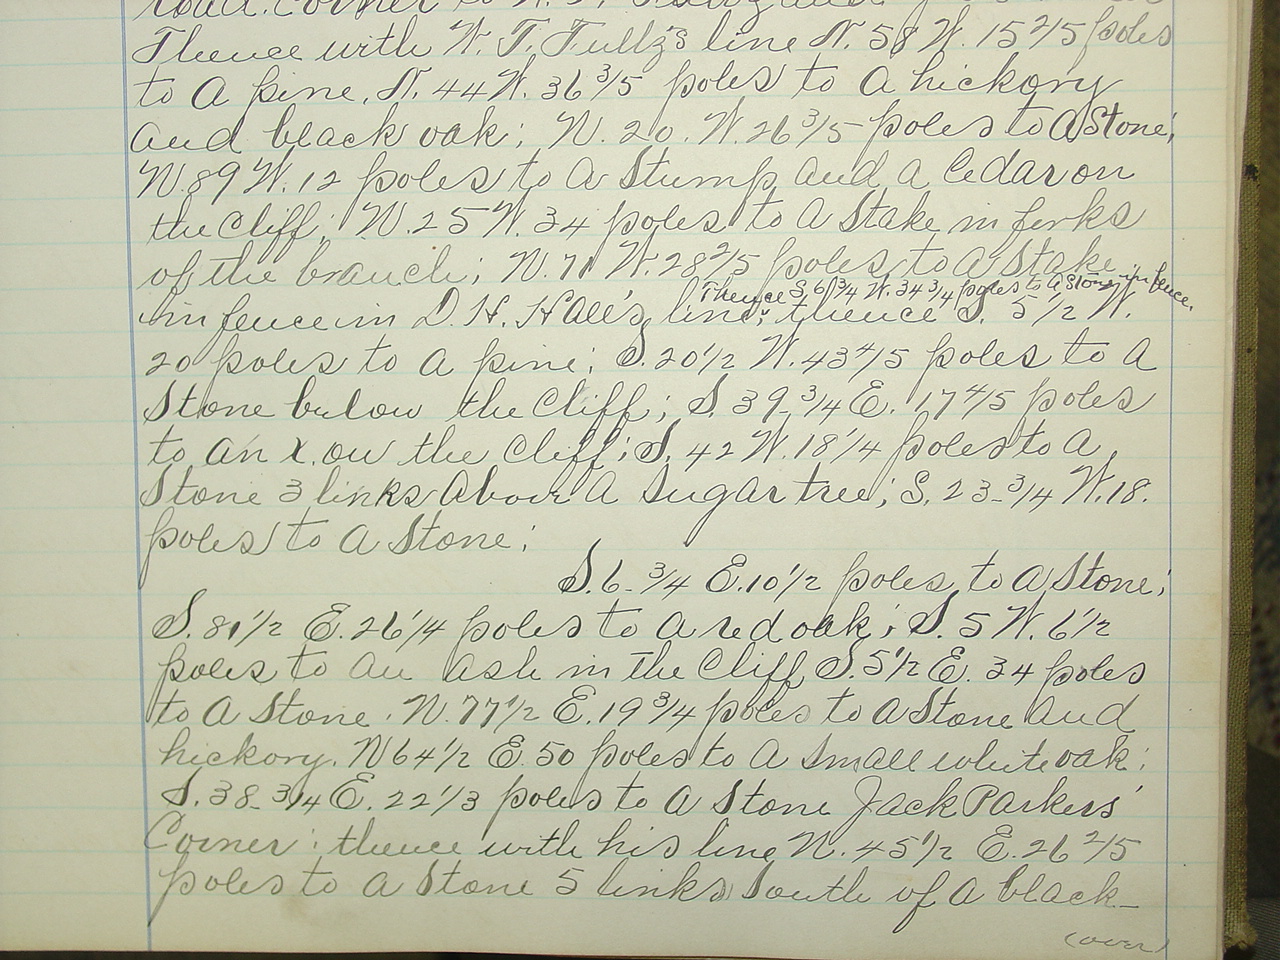 road. Corner to W. T.
Thence with W. T. Fultz's line N. 58 W. 15 2/5 poles
to a pine, N. 44 W. 36 3/5 poles to a hickory
and black oak; N. 20. W. 26 3/5 poles to a Stone;
N. 89 W. 12 poles to a Stump and a Cedar on
the Cliff; N. 25 W. 34 poles to a Stake in forks
of the branch; N. 71 W. 28 2/5 poles to a Stake
Thence S. 61 3/4 W. 34 3/4 poles to a Stone in fence.
in fence in D. H. Hall's line; thence S. 5 1/2 W.
20 poles to a pine; S. 20 1/2 W. 43 4/5 poles to a
Stone below the Cliff; S. 39 3/4 E. 17 4/5 poles
to an X. on the Cliff; S. 42 W. 18 1/4 poles to a
Stone 3 links above a Sugar tree; S. 23 3/4 W. 18.
poles to a Stone;
S. 6 3/4 E. 10 1/2 poles to a Stone;
S. 81 1/2 E. 26 1/4 poles to a red oak; S. 5 W. 6 1/2
poles to an ash in the Cliff S. 5 1/2 E. 34 poles
to a Stone. N. 77 1/2 E. 19 3/4 poles to a Stone and
hickory. N 64 1/2 E. 50 poles to a Small white oak;
S. 38 3/4 E. 22 1/3 poles to a Stone Jack Parkers'
Corner; thence with his line N. 45 1/2 E. 26 2/5
poles to a Stone 5 links South of a black-
(over)